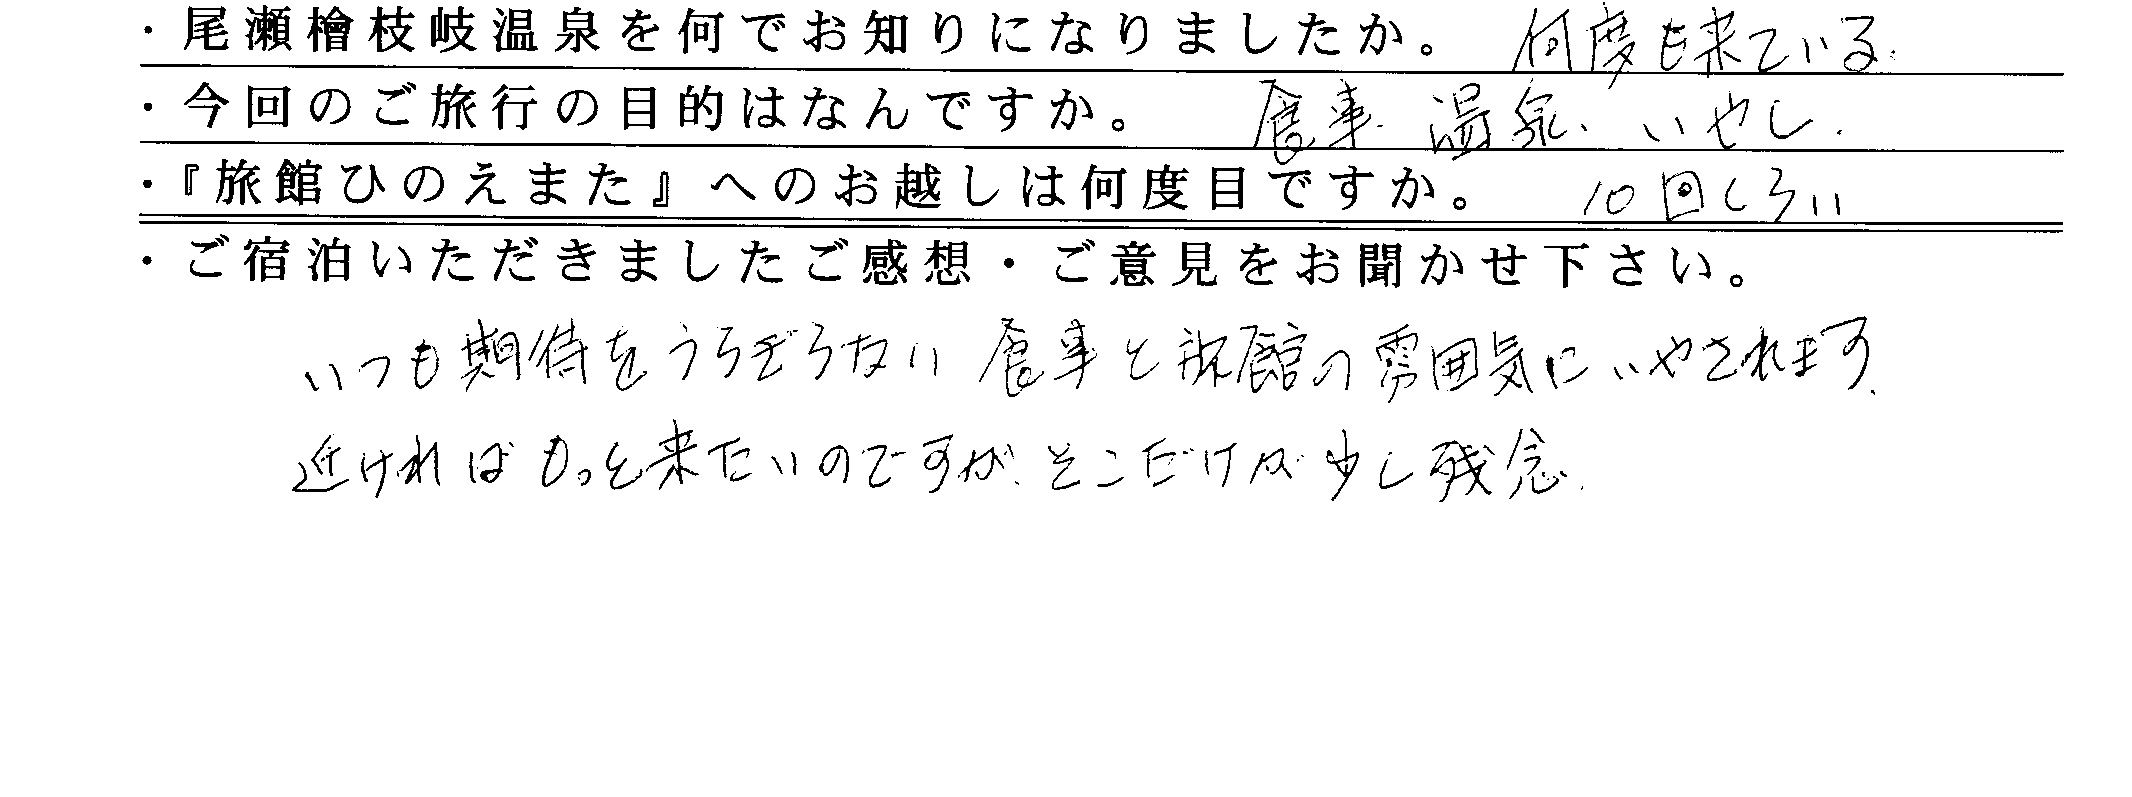 ・尾瀬檜枝岐温泉を何でお知りになりましたか。 何度も来ている.
・今回のご旅行の目的はなんですか。 食事. 温泉、いやし.
・『旅館ひのえまた』へのお越しは何度目ですか。 10回くらい
・ご宿泊いただきましたご感想・ご意見をお聞かせ下さい。
いつも期待をうらぎらない食事と旅館の雰囲気にいやされます.
近ければもっと来たいのですが、そこだけが少し残念.